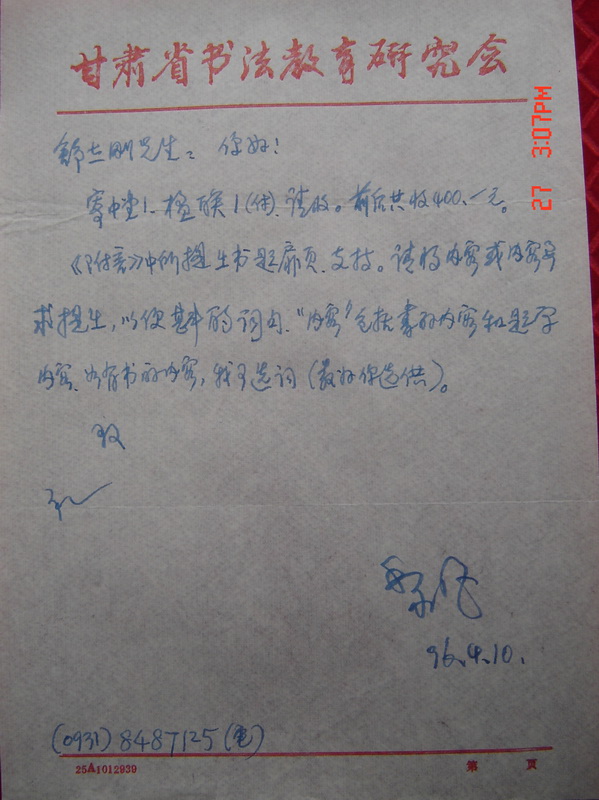 甘肃省书法教育研究会
先生：你好！
寄中堂1、楹联1(付)、请收。前后共收400、一元。
《附言》中所提生书题扉页、支持。请将内容或内容要
求提出，以便斟酌词句、“内容”包括书的内容和题字
内容、如有书的内容，我可选词（最好你选供）。
致
礼
96.4.10.
(0931) 8487125 (宅)
25A1012939 第 页
27 3:07PM